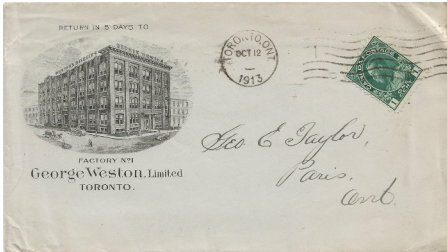 RETURN IN 5 DAYS TO
FACTORY Nº1
George Weston, Limited
TORONTO.
TORONTO, ONT.
OCT 12
1913
Geo. E. Taylor,
Paris,
Ont.